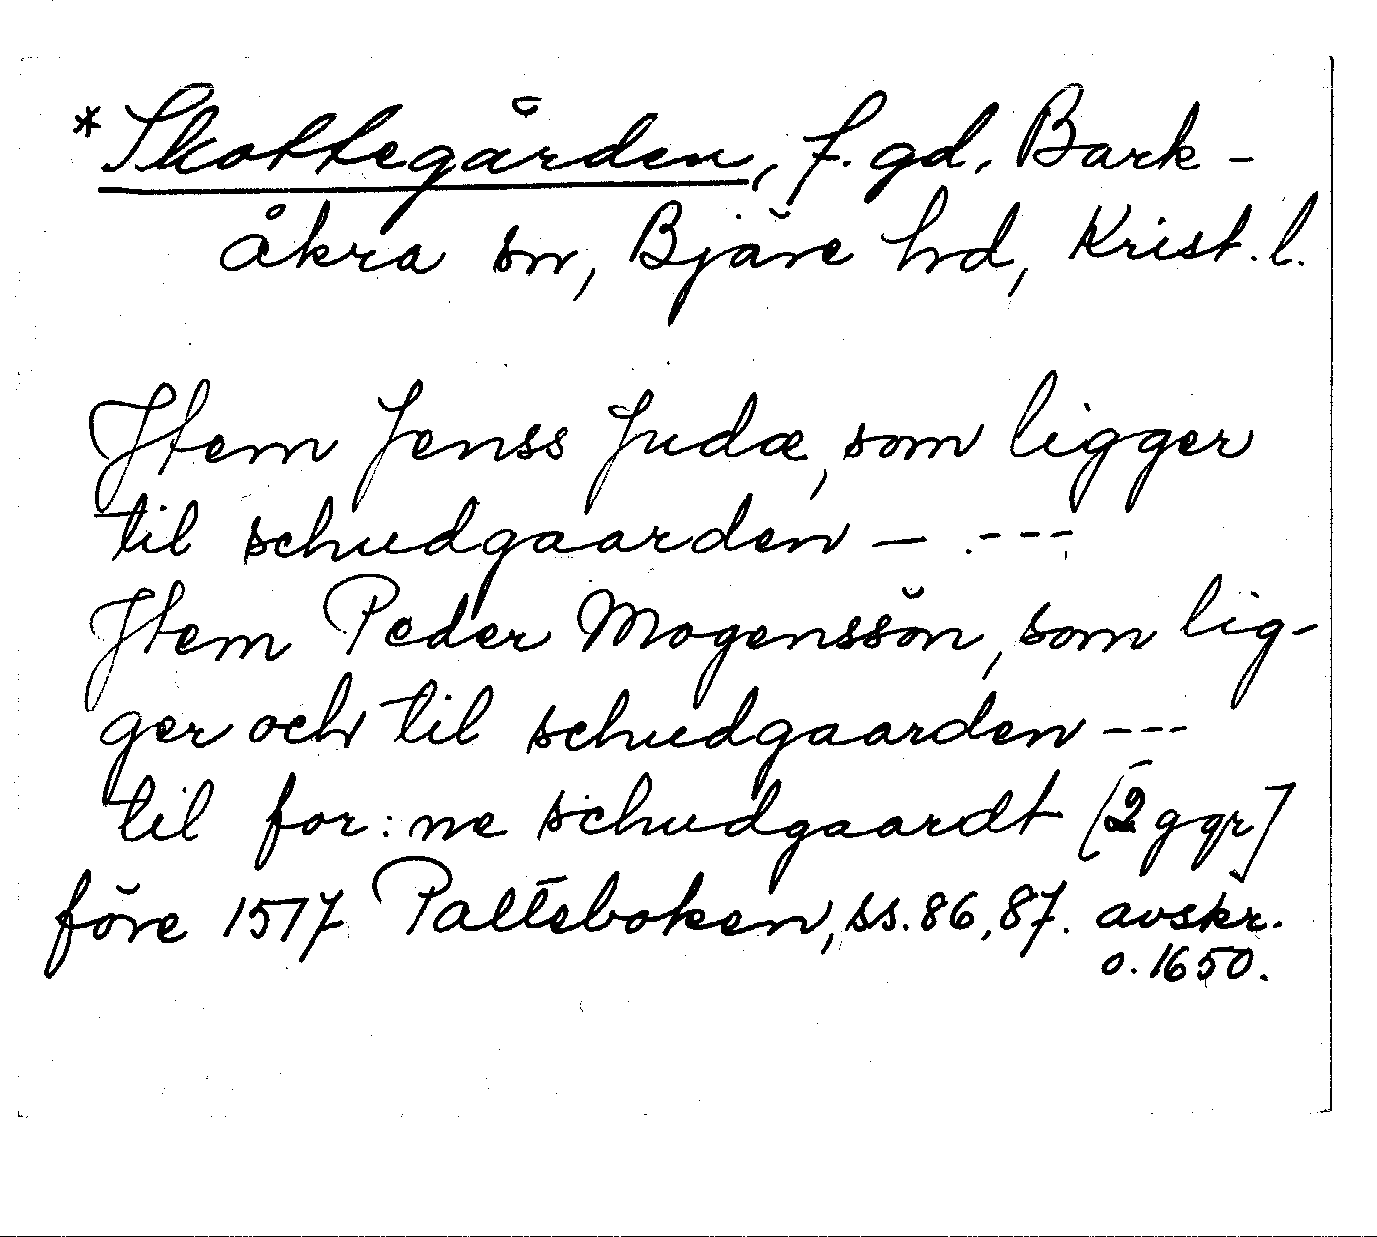 *Skottegården, f. gd, Bark-
åkra sn, Bjäre hd, Krist. l.
Item Jenss Judæ, som ligger
til schudgaarden — ---
Item Peder Mogenssön, som lig-
ger och til schudgaarden ---
til for:ne schudgaardt [2 ggr]
före 1517 Palteboken, ss. 86, 87. avskr.
o. 1650.